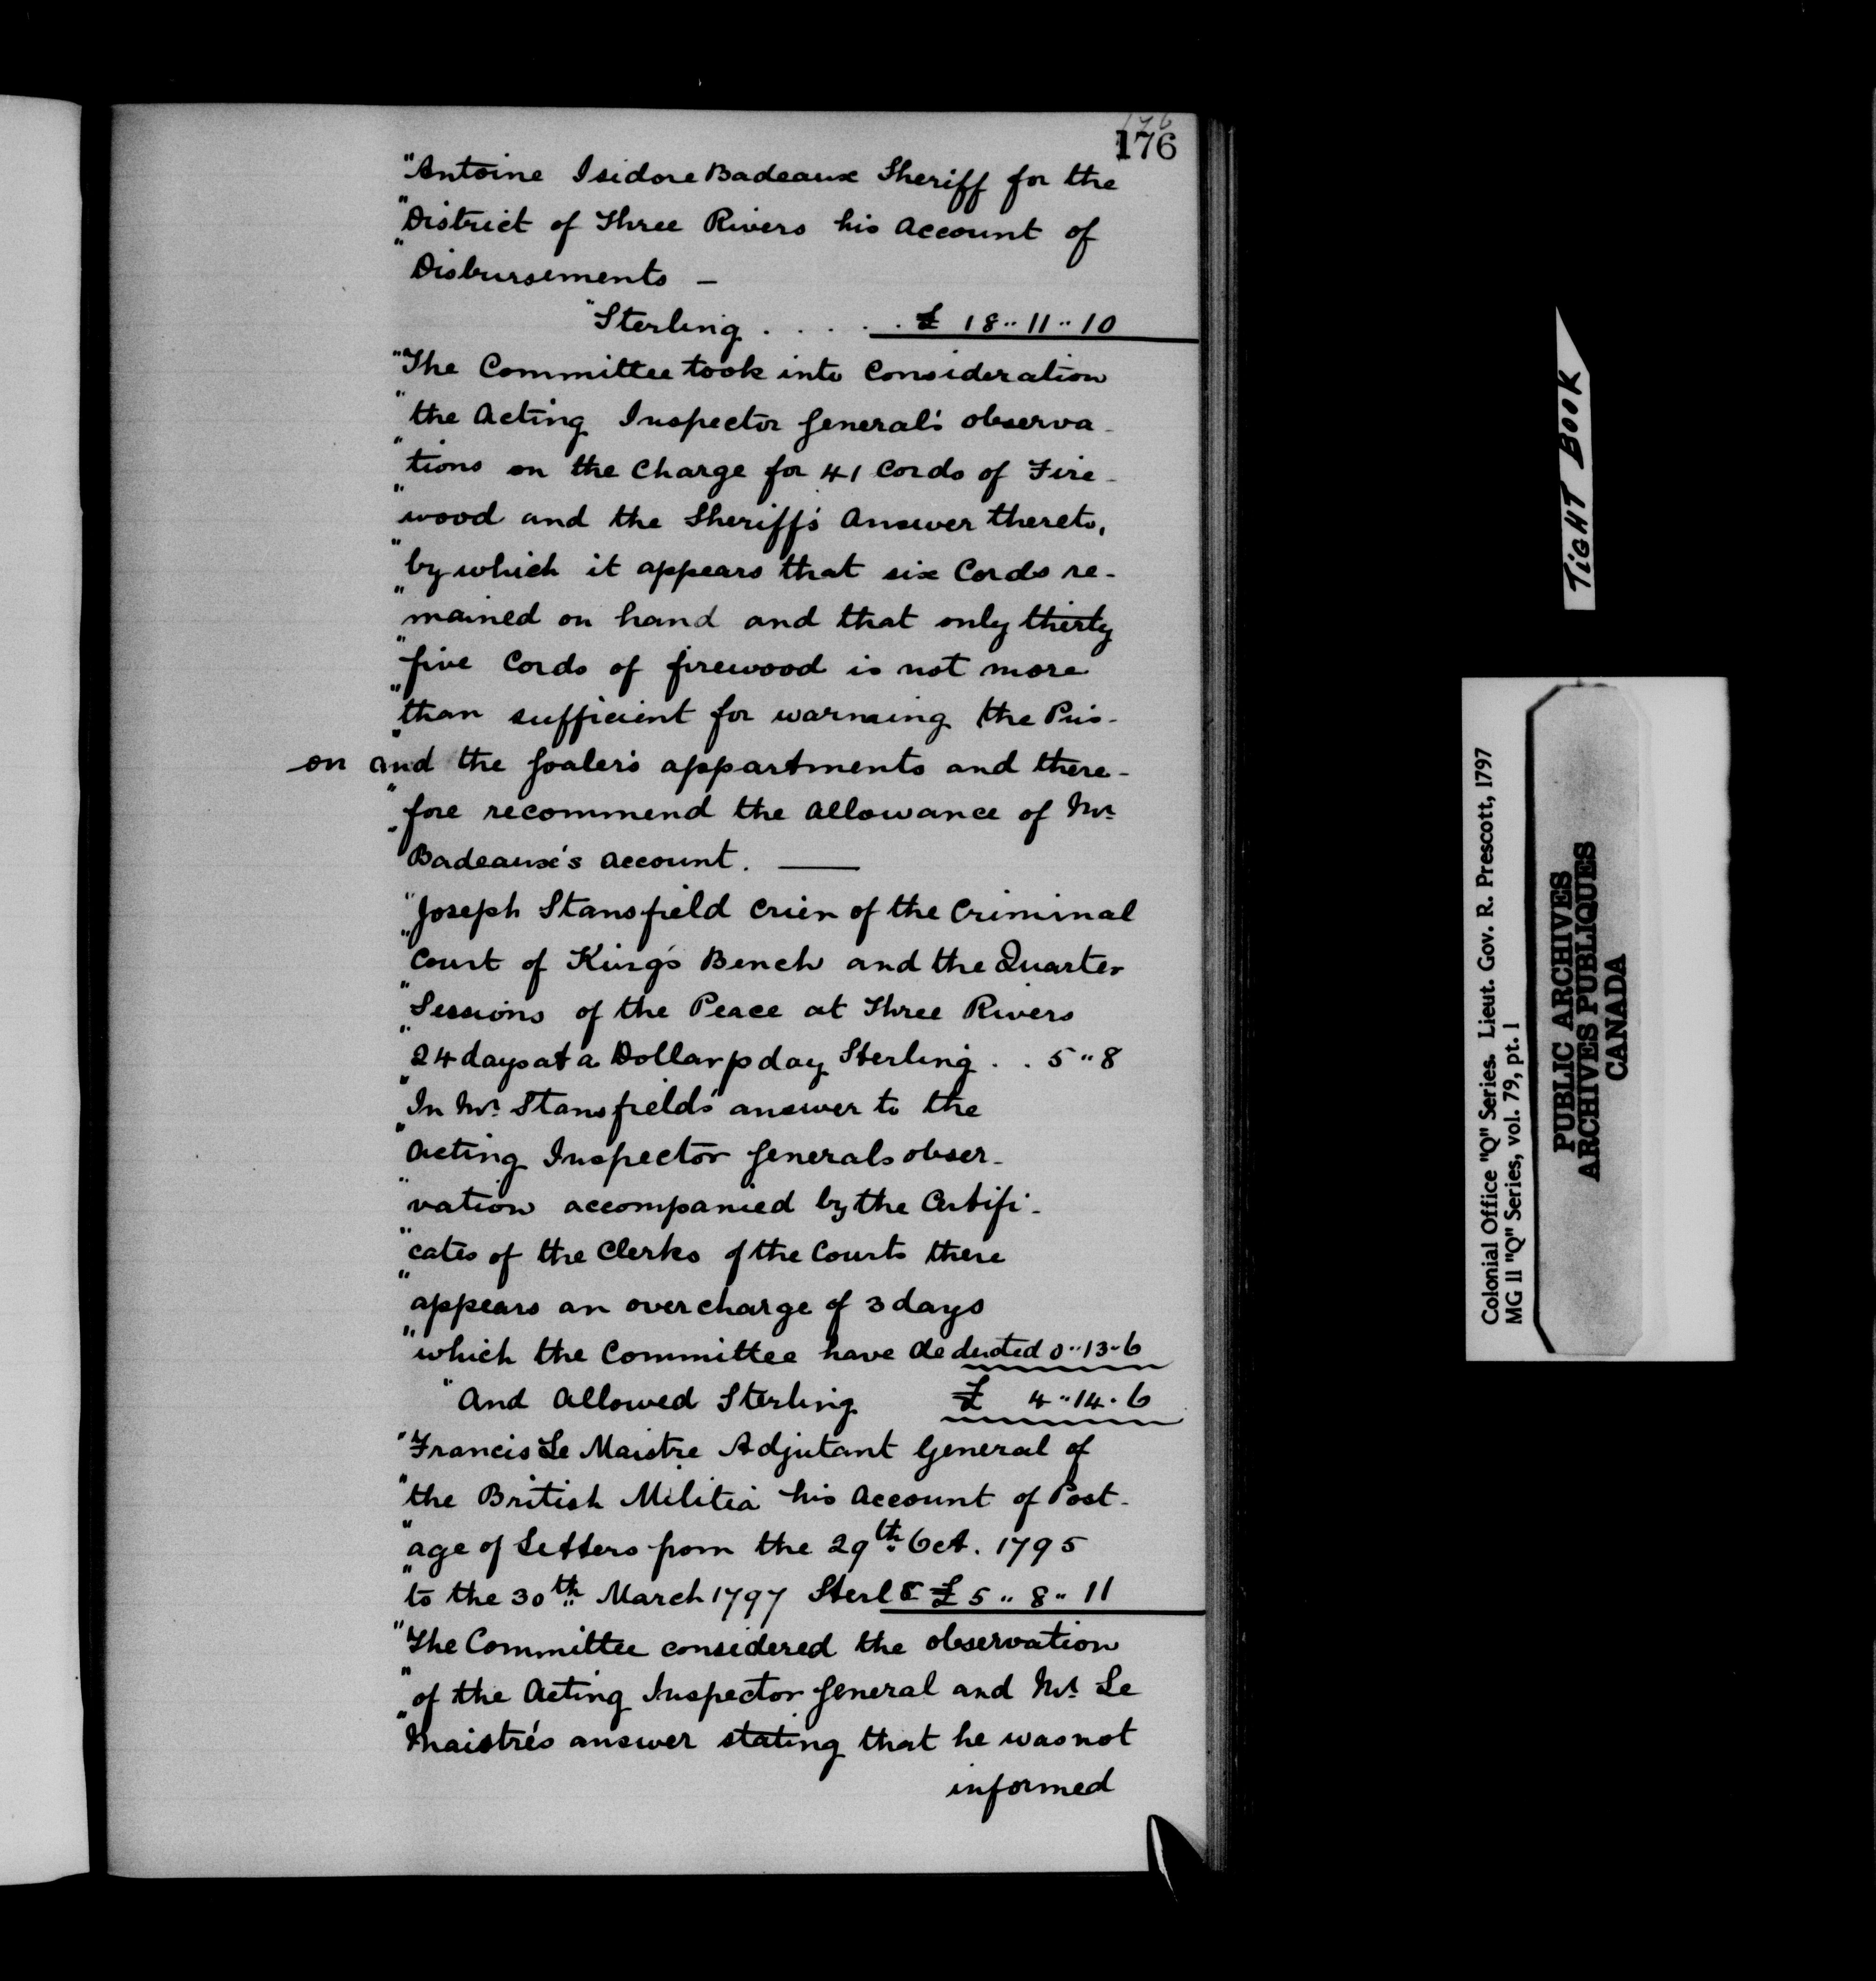 176
176
"Antoine Isidore Badeaux Sheriff for the
"District of Three Rivers his Account of
"Disbursements –
"Sterling . . . . . £ 18 " 11 " 10
"The Committee took into Consideration
"the Acting Inspector General's observa-
"tions on the Charge for 41 Cords of Fire-
"wood and the Sheriff's Answer thereto,
"by which it appears that six Cords re-
"mained on hand and that only thirty
"five Cords of firewood is not more
"than sufficient for warming the Pris-
-on and the Goaler's appartments and there-
"fore recommend the allowance of Mr.
"Badeaux's account. ——
"Joseph Stansfield Crier of the Criminal
"Court of King's Bench and the Quarter
"Sessions of the Peace at Three Rivers
"24 days at a Dollar p day Sterling . . 5 " 8
"In Mr. Stansfield's answer to the
"Acting Inspector Generals obser-
"vation accompanied by the Certifi-
"cates of the Clerks of the Courts there
"appears an overcharge of 3 days
"which the Committee have deducted 0 " 13 " 6
"And Allowed Sterling £ 4 " 14 " 6
"Francis Le Maistre Adjutant General of
"the British Militia his Account of Post-
"age of Letters from the 29th Oct. 1795
"to the 30th March 1797 Sterlg £ 5 " 8 " 11
"The Committee considered the observation
"of the Acting Inspector General and Mr. Le
"Maistre's answer stating that he was not
informed
TIGHT BOOK
Colonial Office "Q" Series. Lieut. Gov. R. Prescott, 1797
MG 11 "Q" Series, vol. 79, pt. 1
PUBLIC ARCHIVES
ARCHIVES PUBLIQUES
CANADA